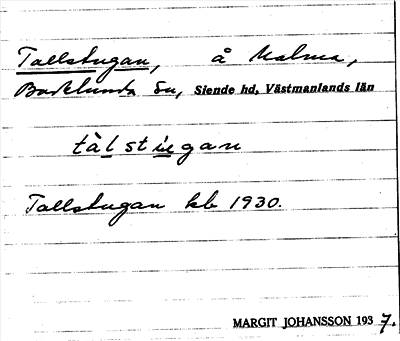 Tallstugan, å Malma,
Badelunda sn, Siende hd, Västmanlands län
tàlstugan
Tallstugan kb 1930.
MARGIT JOHANSSON 1937.